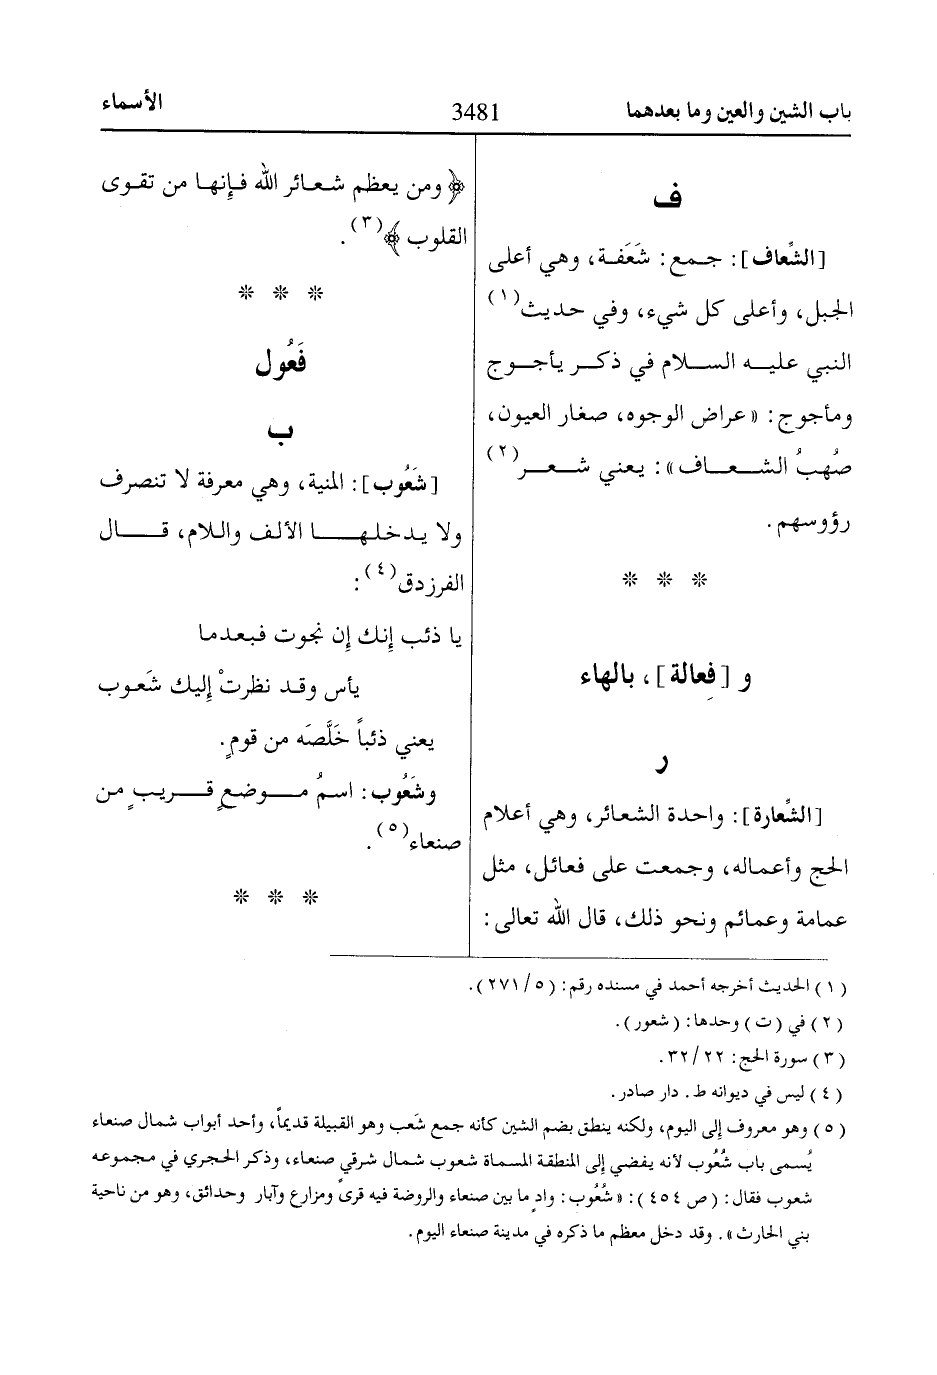 باب الشين والعين وما بعدهما
3481
الأسماء
ف
[الشِّعاف]: جـمـع: شَعَفـة، وهي أعلى
الجبل، وأعلى كل شيء، وفي حديث(١)
النبي عليـه السـلام في ذكـر يأجـوج
ومأجوج: «عراض الوجوه، صغار العيون،
صُهبُ الشـعـاف»: يعني شـعـر(٢)
رؤوسهم.
* * *
و [فِعالة]، بالهاء
ر
[الشِّعارة]: واحدة الشعائر، وهي أعلام
الحج وأعماله، وجمعت على فعائل، مثل
عمامة وعمائم ونحو ذلك، قال الله تعالى:
﴿ومن يعظم شـعـائر الله فـإنهـا من تقـوى
القلوب﴾(٣).
* * *
فَعُول
ب
[شَعُوب]: المنية، وهي معرفة لا تنصرف
ولا يـدخلـهـا الألف واللام، قـال
الفرزدق(٤):
يا ذئب إنك إن نجوت فبعدما
يأس وقد نظرتْ إليك شَعوب
يعني ذئباً خَلَّصَه من قومٍ.
وشَعُوب: اسمُ مـوضعٍ قـريـبٍ من
صنعاء(٥).
* * *
(١) الحديث أخرجه أحمد في مسنده رقم: (٥/٢٧١).
(٢) في (ت) وحدها: (شعور).
(٣) سورة الحج: ٢٢/ ٣٢.
(٤) ليس في ديوانه ط. دار صادر.
(٥) وهو معروف إلى اليوم، ولكنه ينطق بضم الشين كأنه جمع شَعب وهو القبيلة قديماً، وأحد أبواب شمال صنعاء
يُسمى باب شُعُوب لأنه يفضي إلى المنطقة المسماة شعوب شمال شرقي صنعاء، وذكر الحجري في مجموعه
شعوب فقال: (ص ٤٥٤): «شُعُوب: وادٍ ما بين صنعاء والروضة فيه قرى ومزارع وآبار وحدائق، وهو من ناحية
بني الحارث». وقد دخل معظم ما ذكره في مدينة صنعاء اليوم.